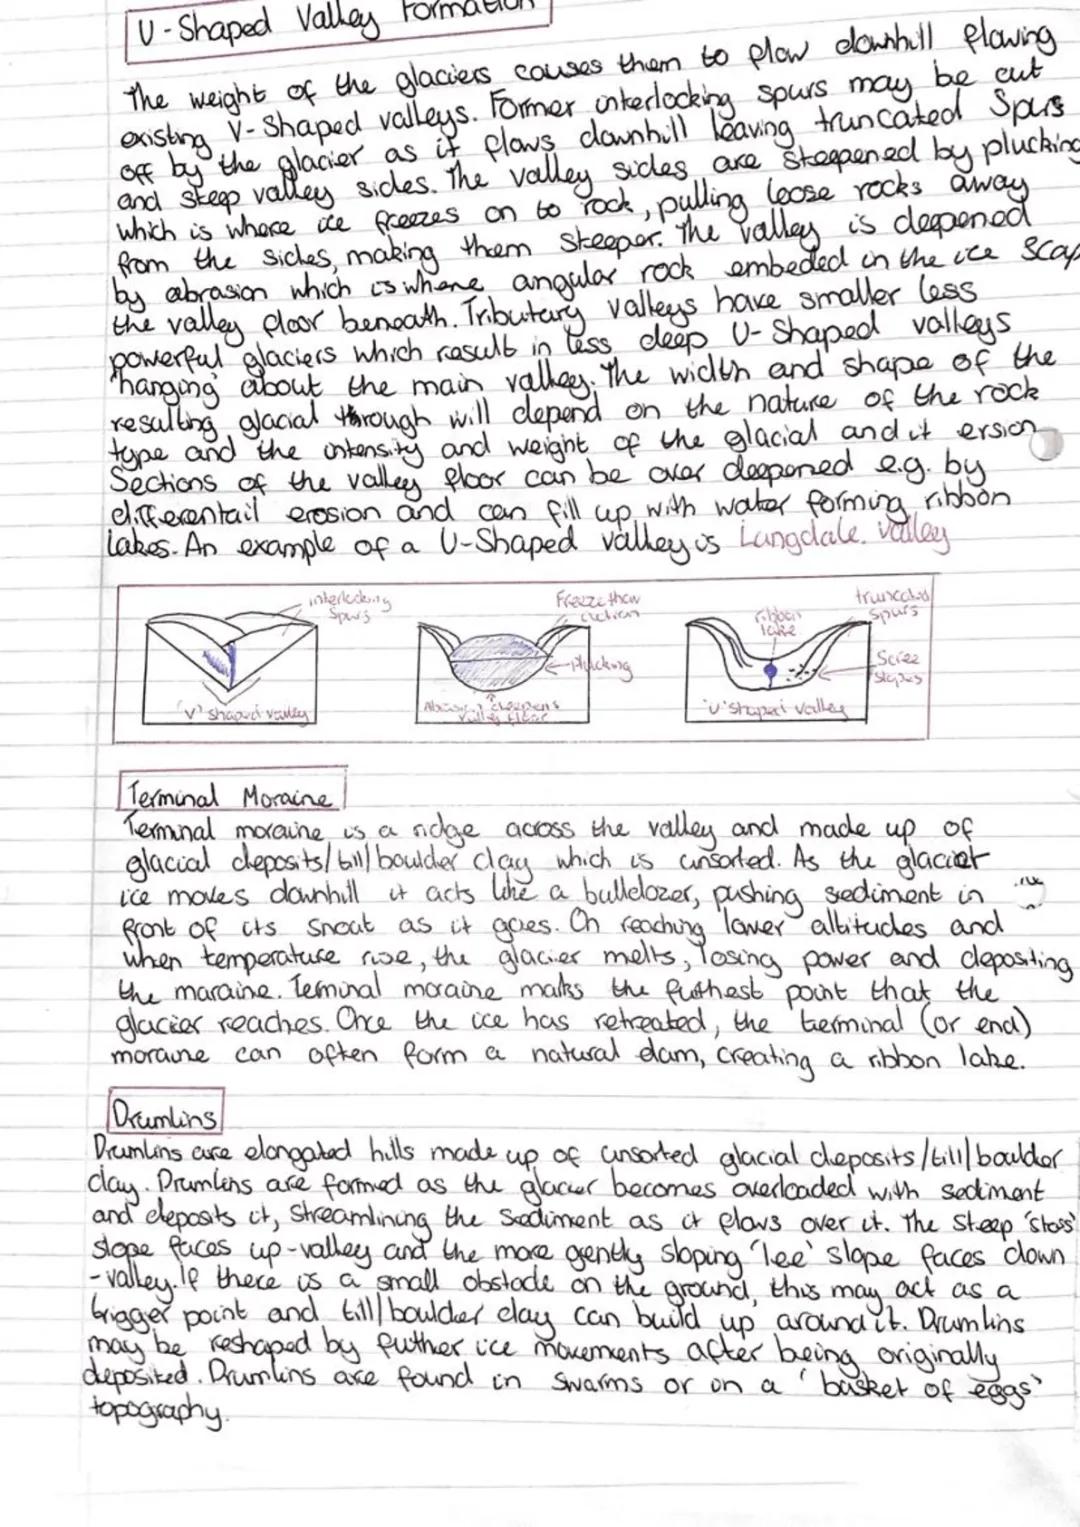 U-Shaped Valley Formation
The weight of the glaciers causes them to flow downhill flowing
existing V-Shaped valleys. Former interlocking spurs may be cut
off by the glacier as it flows downhill leaving truncated Spurs
and steep valley sides. The valley sides are steepened by plucking
which is where ice freezes on to rock, pulling loose rocks away
from the sides, making them steeper. The valley is deepened
by abrasion which is where angular rock embeded in the ice Scap
the valley floor beneath. Tributary valleys have smaller less
powerful glaciers which result in less deep U-Shaped valleys
'hanging' about the main valley. The width and shape of the
resulting glacial through will depend on the nature of the rock
type and the intensity and weight of the glacial and it ersion
Sections of the valley floor can be over deepened e.g. by
differentail erosion and can fill up with water forming ribbon
lakes. An example of a U-Shaped valley is Langdale. Valley
interlocking
Spurs
'V' shaped valley
Freeze thaw
action
Plucking
Abrasion deepens
valley floor
ribbon
lake
truncated
spurs
Scree
slopes
'U' shaped valley
Terminal Moraine
Terminal moraine is a ridge across the valley and made up of
glacial deposits/till/boulder clay which is unsorted. As the glacier
ice moves downhill it acts like a bulldozer, pushing sediment in
front of its snout as it goes. On reaching lower altitudes and
when temperature rise, the glacier melts, losing power and depositing
the moraine. Terminal moraine marks the furthest point that the
glacier reaches. Once the ice has retreated, the terminal (or end)
moraine can often form a natural dam, creating a ribbon lake.
Drumlins
Drumlins are elongated hills made up of unsorted glacial deposits/till/boulder
clay. Drumlins are formed as the glacier becomes overloaded with sediment
and deposits it, streamlining the sediment as it flows over it. The steep 'stoss'
slope faces up-valley and the more gently sloping 'lee' slope faces down
-valley. If there is a small obstacle on the ground, this may act as a
trigger point and till/boulder clay can build up around it. Drumlins
may be reshaped by further ice movements after being originally
deposited. Drumlins are found in swarms or in a 'basket of eggs'
topography.